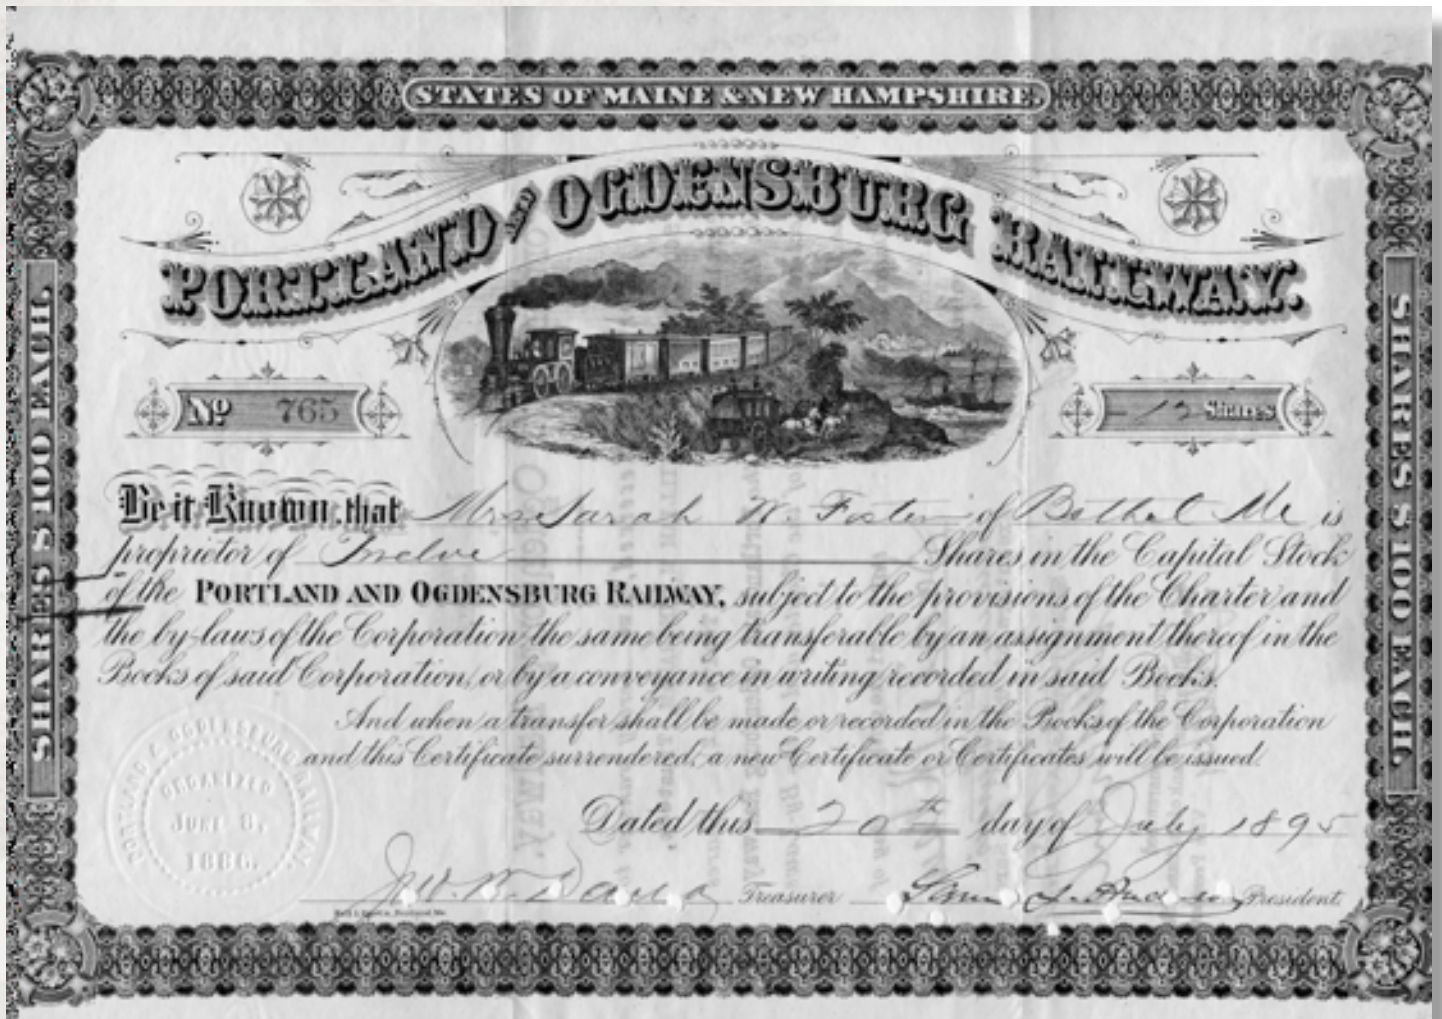 STATES OF MAINE & NEW HAMPSHIRE.
PORTLAND AND OGDENSBURG RAILWAY.
No 765
12 Shares
SHARES $100 EACH.
SHARES $100 EACH.
Be it Known, that Mrs Sarah W. Foster of Bethel Me is
proprietor of Twelve Shares in the Capital Stock
of the PORTLAND AND OGDENSBURG RAILWAY, subject to the provisions of the Charter and
the by-laws of the Corporation the same being transferable by an assignment thereof in the
Books of said Corporation, or by a conveyance in writing recorded in said Books.
And when a transfer shall be made or recorded in the Books of the Corporation
and this Certificate surrendered, a new Certificate or Certificates will be issued.
PORTLAND & OGDENSBURG RAILWAY
ORGANIZED
JUNE 8,
1886.
Dated this 20th day of July 1895
Treasurer
President.